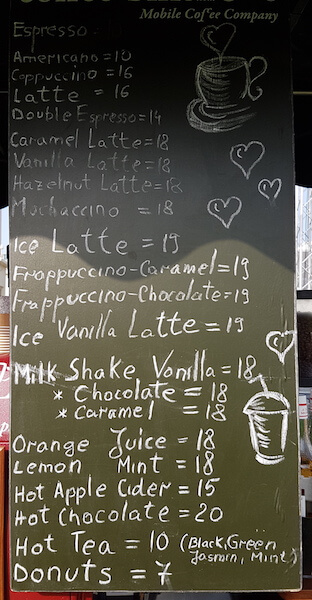 Mobile Coffee Company
Espresso
Americano=10
Cappuccino = 16
Latte = 16
Double Espresso=14
Caramel Latte=18
Vanilla Latte=18
Hazelnut Latte=18
Mochaccino = 18
Ice Latte = 19
Frappuccino-Caramel=19
Frappuccino-Chocolate=19
Ice Vanilla Latte = 19
Milk Shake Vanilla = 18
* Chocolate = 18
* Caramel = 18
Orange Juice = 18
Lemon Mint = 18
Hot Apple Cider = 15
Hot Chocolate = 20
Hot Tea = 10 (Black, Green
Jasmin, Mint)
Donuts = 7